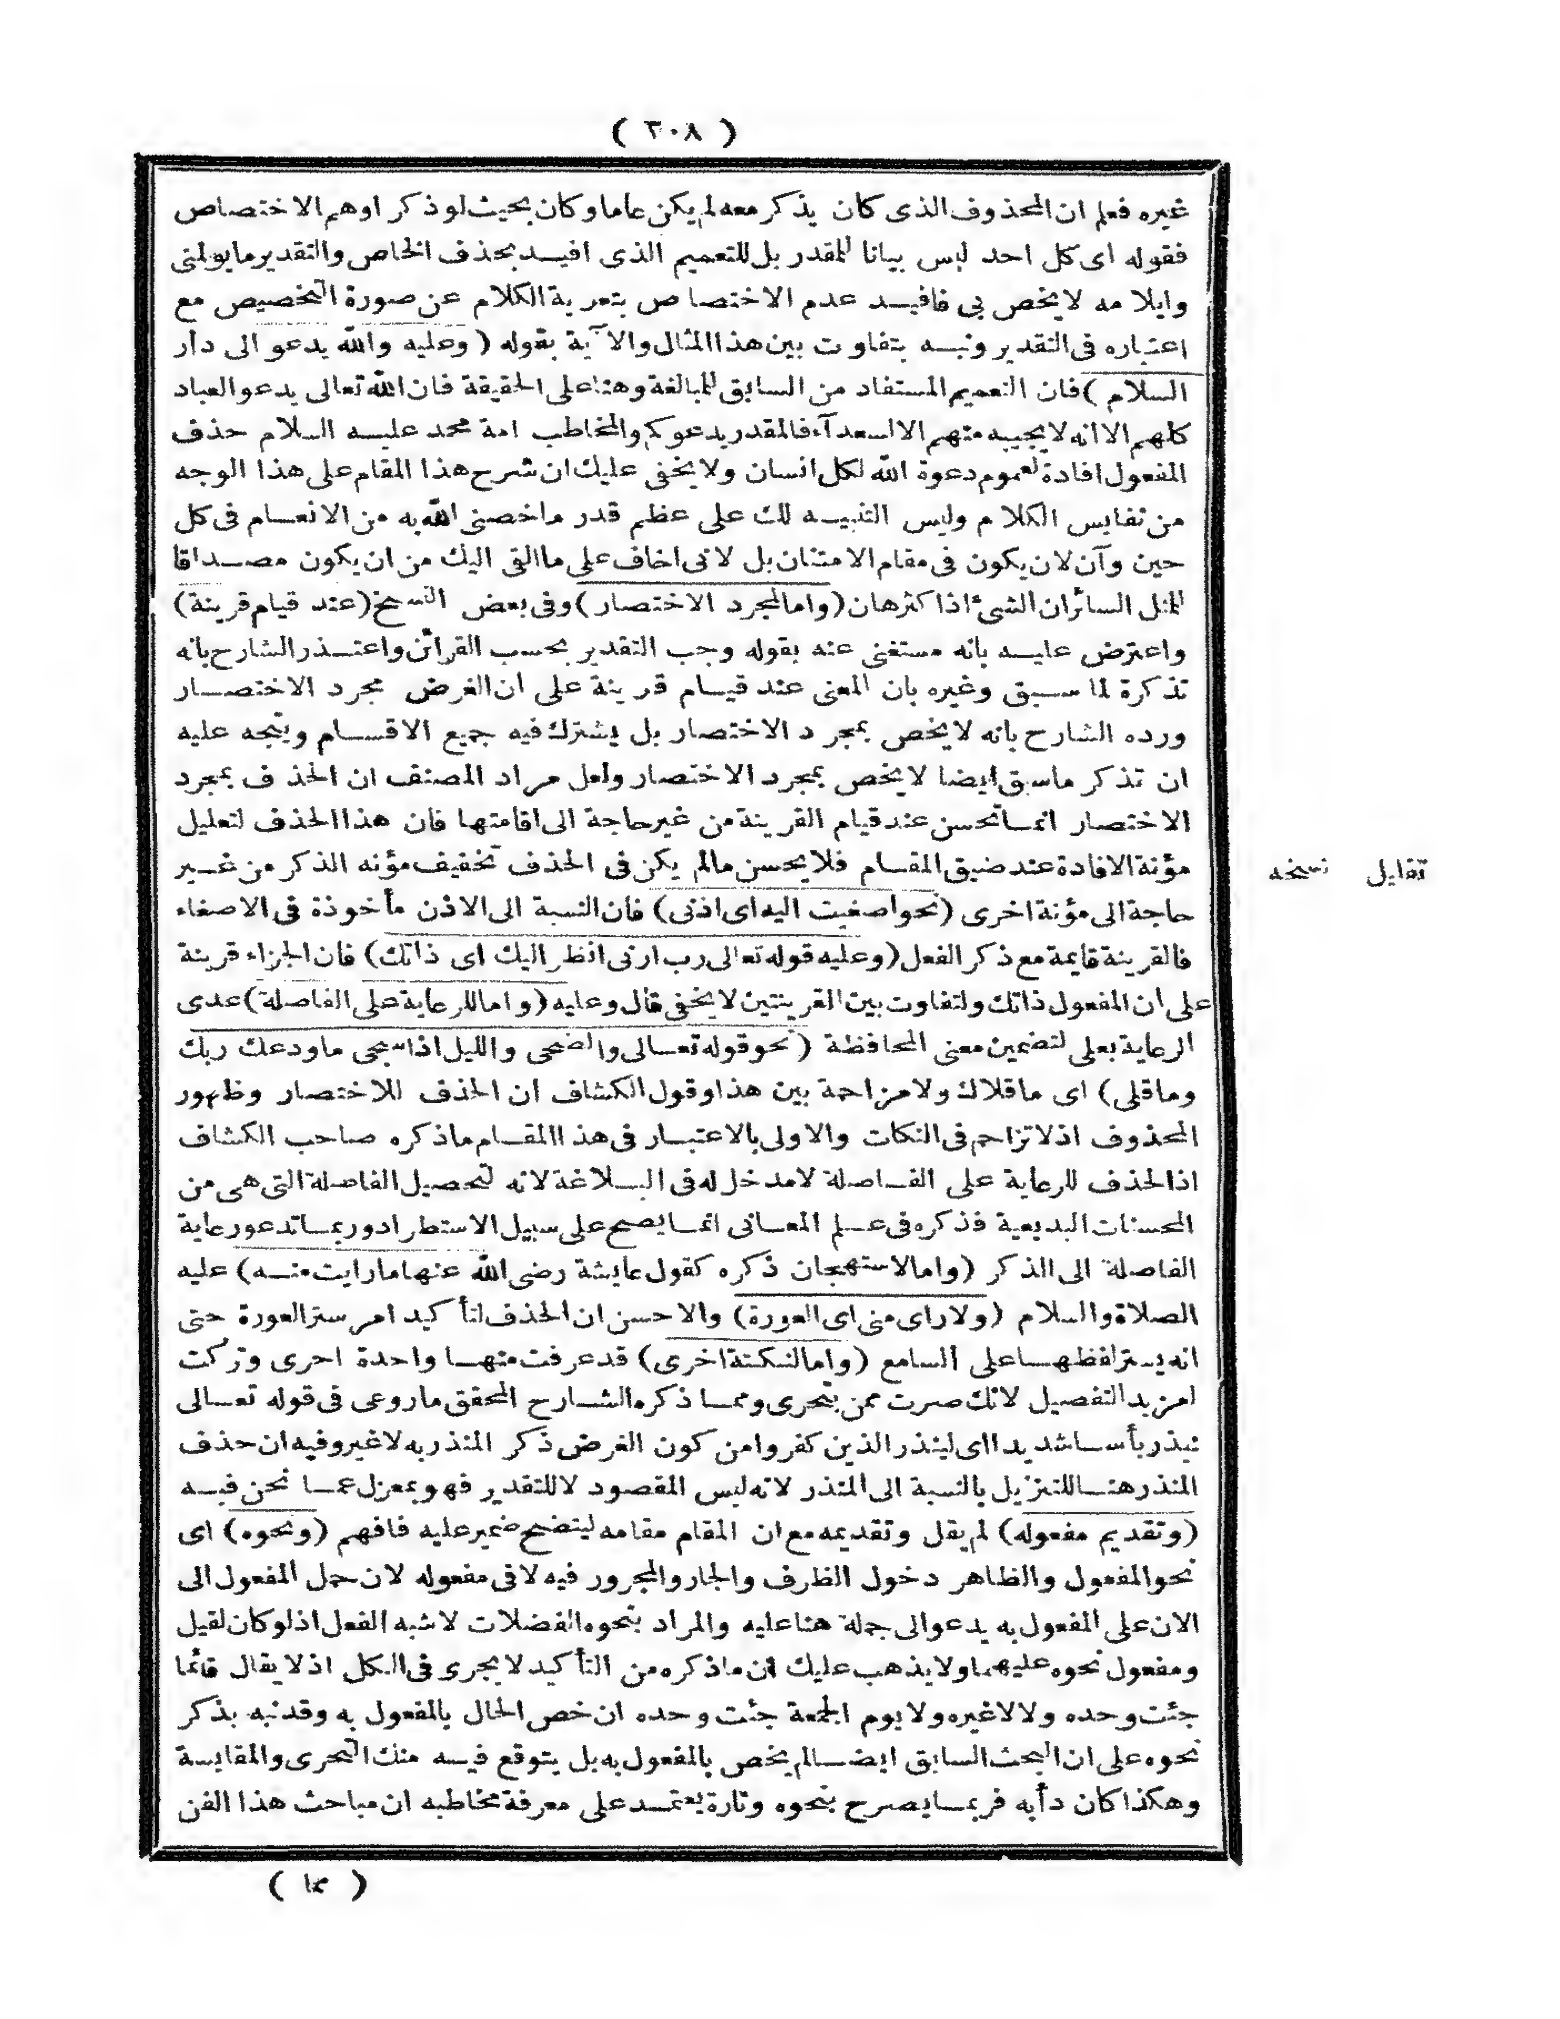 ( ٣٠٨ )
غيره فعلم ان المحذوف الذى كان يذكر معه لم يكن عاما وكان بحيث لو ذكر اوهم الاختصاص
فقوله اى كل احد ليس بيانا للمقدر بل للتعميم الذى افيد بحذف الخاص والتقدير ما يولمنى
وايلامه لا يخص بى فافيد عدم الاختصاص بتعرية الكلام عن صورة التخصيص مع
اعتباره فى التقدير ونبه بتفاوت بين هذا المثال والآية بقوله ( وعليه والله يدعو الى دار
السلام ) فان التعميم المستفاد من السابق للمبالغة وهنا على الحقيقة فان الله تعالى يدعو العباد
كلهم الا انه لا يجيبه منهم الا السعدآء فالمقدر يدعوكم والمخاطب امة محمد عليه السلام حذف
المفعول افادة لعموم دعوة الله لكل انسان ولا يخفى عليك ان شرح هذا المقام على هذا الوجه
من نفايس الكلام وليس التنبيه لك على عظم قدر ما خصنى الله به من الانعام فى كل
حين وآن لان يكون فى مقام الامتنان بل لانى اخاف على ما القى اليك من ان يكون مصداقا
للمثل السائر ان الشىء اذا كثر هان ( واما لمجرد الاختصار ) وفى بعض النسخ ( عند قيام قرينة )
واعترض عليه بانه مستغنى عنه بقوله وجب التقدير بحسب القرائن واعتذر الشارح بانه
تذكرة لما سبق وغيره بان المعنى عند قيام قرينة على ان الغرض مجرد الاختصار
ورده الشارح بانه لا يخص بمجرد الاختصار بل يشترك فيه جميع الاقسام ويتجه عليه
ان تذكر ما سبق ايضا لا يخص بمجرد الاختصار ولعل مراد المصنف ان الحذف بمجرد
الاختصار انما تحسن عند قيام القرينة من غير حاجة الى اقامتها فان هذا الحذف لتعليل
مؤنة الافادة عند ضيق المقام فلا يحسن ما لم يكن فى الحذف تخفيف مؤنه الذكر من غير
تقليل نسخه
حاجة الى مؤنة اخرى ( نحو اصغيت اليه اى اذنى ) فان النسبة الى الاذن مأخوذة فى الاصغاء
فالقرينة قايمة مع ذكر الفعل ( وعليه قوله تعالى رب ارنى انظر اليك اى ذاتك ) فان الجزاء قرينة
على ان المفعول ذاتك ولتفاوت بين القرينتين لا يخفى قال وعليه ( واما للرعاية على الفاصلة ) عدى
الرعاية بعلى لتضمين معنى المحافظة ( نحو قوله تعالى والضحى والليل اذا سجى ما ودعك ربك
وما قلى ) اى ما قلاك ولا مزاحمة بين هذا وقول الكشاف ان الحذف للاختصار وظهور
المحذوف اذ لا تزاحم فى النكات والاولى بالاعتبار فى هذا المقام ما ذكره صاحب الكشاف
اذ الحذف للرعاية على الفاصلة لا مدخل له فى البلاغة لانه لتحصيل الفاصلة التى هى من
المحسنات البديعية فذكره فى علم المعانى انما يصح على سبيل الاستطراد وربما تدعو رعاية
الفاصلة الى الذكر ( واما لاستهجان ذكره كقول عايشة رضى الله عنها ما رايت منه ) عليه
الصلاة والسلام ( ولا راى منى اى العورة ) والاحسن ان الحذف لتأكيد امر ستر العورة حتى
انه يستر لفظها على السامع ( واما لنكتة اخرى ) قد عرفت منها واحدة احرى وتركت
لمزيد التفصيل لانك صرت ممن يتحرى ومما ذكره الشارح المحقق ما روعى فى قوله تعالى
لينذر بأسا شديدا اى لينذر الذين كفروا من كون الغرض ذكر المنذر به لا غير وفيه ان حذف
المنذر هنا للتنزيل بالنسبة الى المنذر لانه ليس المقصود لا للتقدير فهو بمعزل عما نحن فيه
( وتقديم مفعوله ) لم يقل وتقديمه مع ان المقام مقامه ليتضح ضمير عليه فافهم ( ونحوه ) اى
نحو المفعول والظاهر دخول الظرف والجار والمجرور فيه لا فى مفعوله لان حمل المفعول الى
الان على المفعول به يدعو الى حمله هنا عليه والمراد بنحوه الفضلات لا شبه الفعل اذ لو كان لقيل
ومفعول نحوه عليهما ولا يذهب عليك ان ما ذكره من التأكيد لا يجرى فى الكل اذ لا يقال قائما
جئت وحده ولا لا غيره ولا يوم الجمعة جئت وحده ان خص الحال بالمفعول به وقد نبه بذكر
نحوه على ان البحث السابق ايضا لم يخص بالمفعول به بل يتوقع فيه منك التحرى والمقايسة
وهكذا كان دأبه فربما يصرح بنحوه وتارة يعتمد على معرفة مخاطبه ان مباحث هذا الفن
( مما )